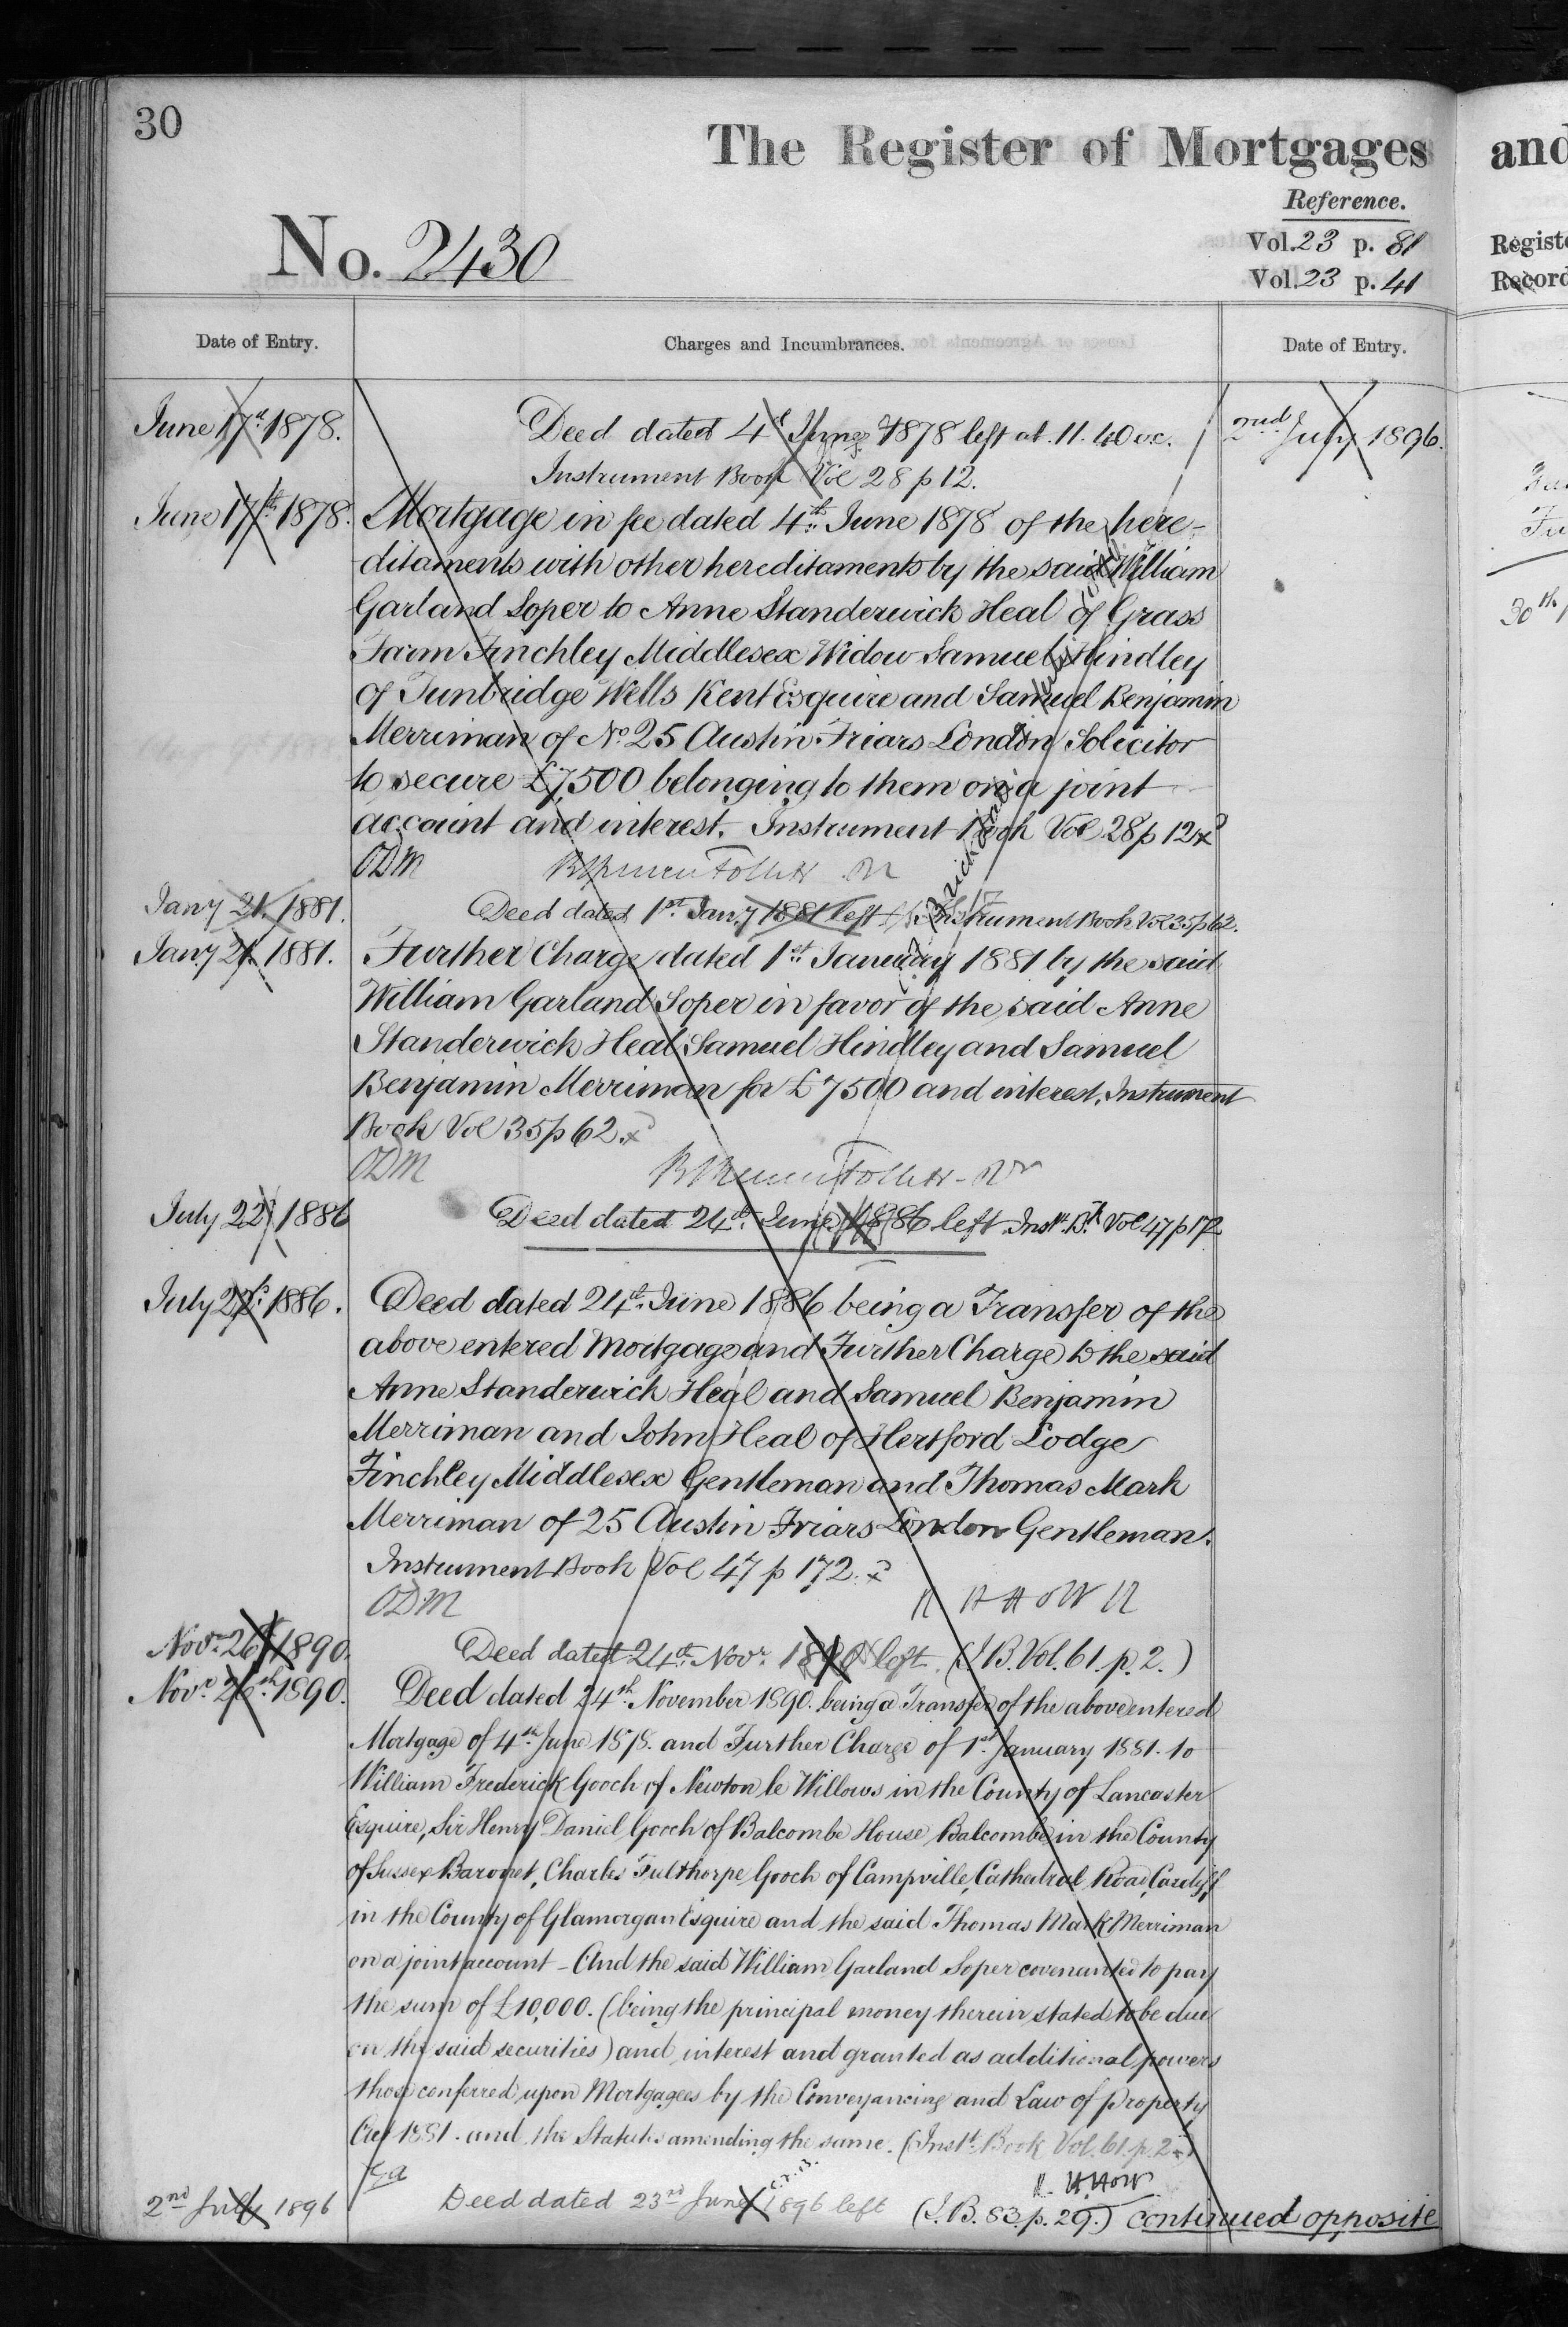 30
The Register of Mortgages
and
Reference.
No. 2430
Vol. 23 p. 81
Vol. 23 p. 41
Date of Entry.
Charges and Incumbrances.
Date of Entry.
June 17th 1878.
Deed dated 4th June 1878 left at 11.40
2nd July 1896.
Instrument Book Vol 28 p 12.
June 17th 1878.
Mortgage in fee dated 4th June 1878 of the here-
ditaments with other hereditaments by the said William
Garland Soper to Anne Standerwick Heal of Grass
Farm Finchley Middlesex Widow Samuel Hindley
of Tunbridge Wells Kent Esquire and Samuel Benjamin
Merriman of No 25 Austin Friars London Solicitor
to secure £7,500 belonging to them on a joint
account and interest. Instrument Book Vol 28 p 12
ODM
Jany 21. 1881.
Deed dated 1st Jany 1881 left Instrument Book Vol 35 p 62.
Jany 21. 1881.
Further Charge dated 1st January 1881 by the said
William Garland Soper in favor of the said Anne
Standerwick Heal Samuel Hindley and Samuel
Benjamin Merriman for £7500 and interest. Instrument
Book Vol 35 p 62.
ODM
July 22 1886
Deed dated 24th June 1886 left Inst. Bk Vol 47 p 172
July 22 1886.
Deed dated 24th June 1886 being a Transfer of the
above entered Mortgage and Further Charge to the said
Anne Standerwick Heal and Samuel Benjamin
Merriman and John Heal of Hertford Lodge
Finchley Middlesex Gentleman and Thomas Mark
Merriman of 25 Austin Friars London Gentleman.
Instrument Book Vol 47 p 172.
ODM
Novr 26th 1890.
Deed dated 24th Novr. 1890 left. (I.B. Vol. 61. p. 2.)
Novr 26th 1890.
Deed dated 24th November 1890. being a Transfer of the above entered
Mortgage of 4th June 1878. and Further Charge of 1st January 1881. to
William Frederick Gooch of Newton le Willows in the County of Lancaster
Esquire, Sir Henry Daniel Gooch of Balcombe House Balcombe in the County
of Sussex Baronet, Charles Fulthorpe Gooch of Campville, Cathedral Road, Cardiff
in the County of Glamorgan Esquire and the said Thomas Mark Merriman
on a joint account - And the said William Garland Soper covenanted to pay
the sum of £10,000. (being the principal money therein stated to be due
on the said securities) and interest and granted as additional powers
those conferred upon Mortgagees by the Conveyancing and Law of Property
Act 1881. and the Statutes amending the same. (Inst. Book Vol. 61. p. 2.)
2nd July 1896
Deed dated 23rd June 1896 left (I.B. 83. p. 29.) continued opposite